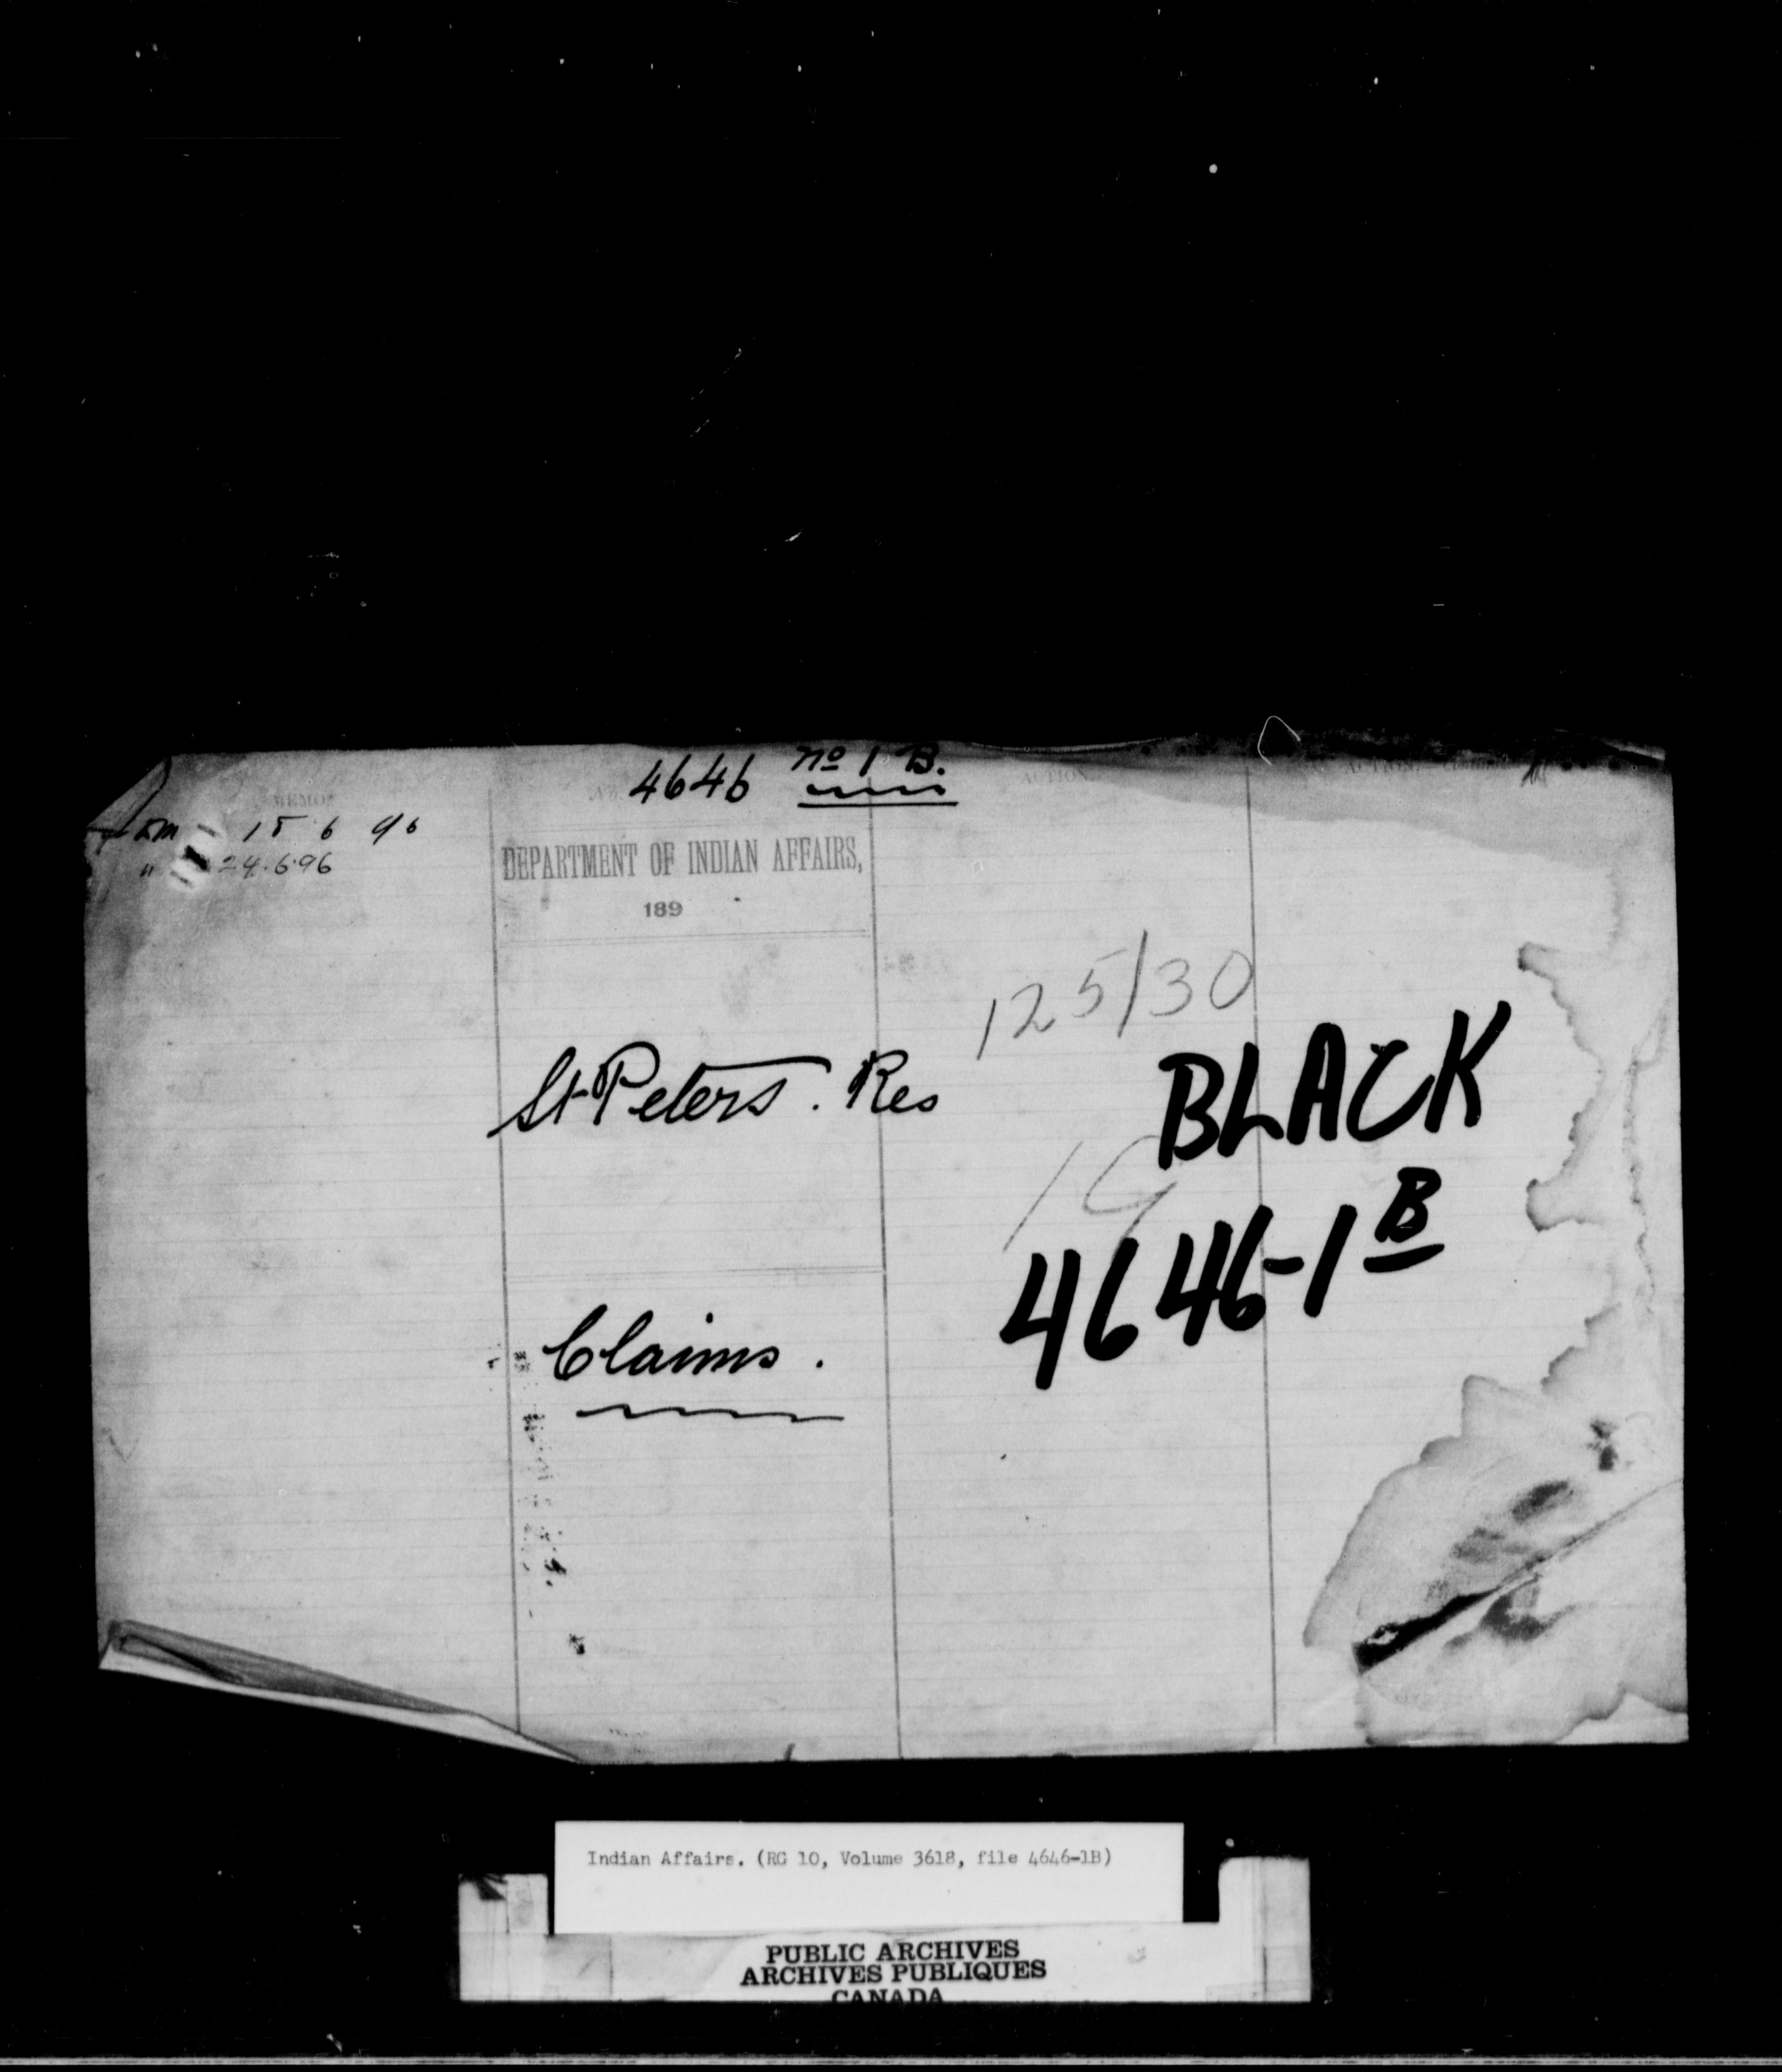 4646 No 1 B.
MEMO
ACTION
ACTION
15 6 96
" 24.6.96
DEPARTMENT OF INDIAN AFFAIRS,
189
125/30
St Peters. Res
BLACK
4646-1B
Claims.
Indian Affairs. (RG 10, Volume 3618, file 4646-1B)
PUBLIC ARCHIVES
ARCHIVES PUBLIQUES
CANADA